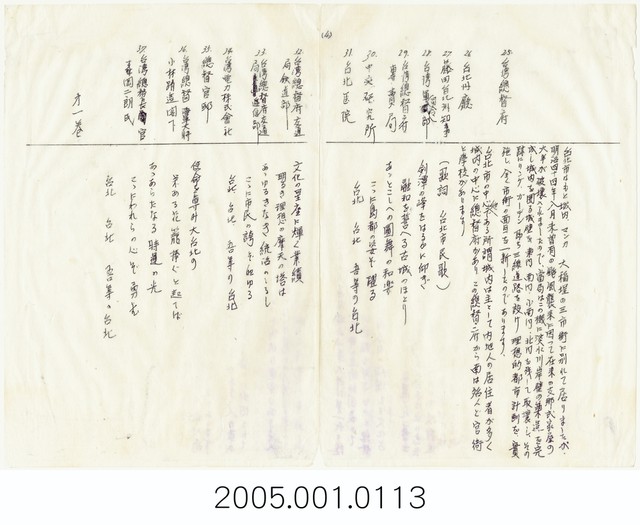 (4)
25. 台湾総督府
26. 台北州廳
27. 藤田台北州知事
28. 台湾軍
29. 台湾総督府
専賣局
30. 中央研究所
31. 台北医院
台北市はもと城内、マンカ、大稲埕の三市街に別れて居りましたが、
明治四十四年八月未曽有の颱風襲来に因って在来の支那式家屋の
大半が破壊されましたので、当局はこの機に淡水河岸壁の築造を完
成し城内を囲る城壁を東門、南門、小南門、北門を残して取壊し、その
跡にパークガーデン
施し、全市街の面目を一新したのであります。
台北市の中心である所謂城内は主として内地人の居住者が多く
城内の中心に総督府があり、この総督府から南は殆んど官衙
と学校があります。
(歌詞 台北市民歌)
剣潭の峰をはるかに仰ぎ
融和を誓へる古城のほとり
あつとこしへの園舞の和楽
ここに島都の姿ぞ躍る
台北 台北 吾等の台北
32. 台湾総督府交通
局鉄道部
33. 台湾総督府交通
局逓信部
34. 台湾電力株式會社
35. 総督官邸
36. 台湾総督
小林躋造閣下
37. 台湾総務長官
森岡二朗氏
文化の星座に輝く業績
明るき理想の摩天の塔は
あゝゆるぎなき統治のしるし
ここに市民の誇ぞ燃ゆる
台北 台北 吾等の台北
使命も尊き大台北の
栄ある花籠帯びと起てば
あゝあらたなる時運の光
ここにわれらの心ぞ勇む
台北 台北 吾等の台北
才一巻
2005.001.0113